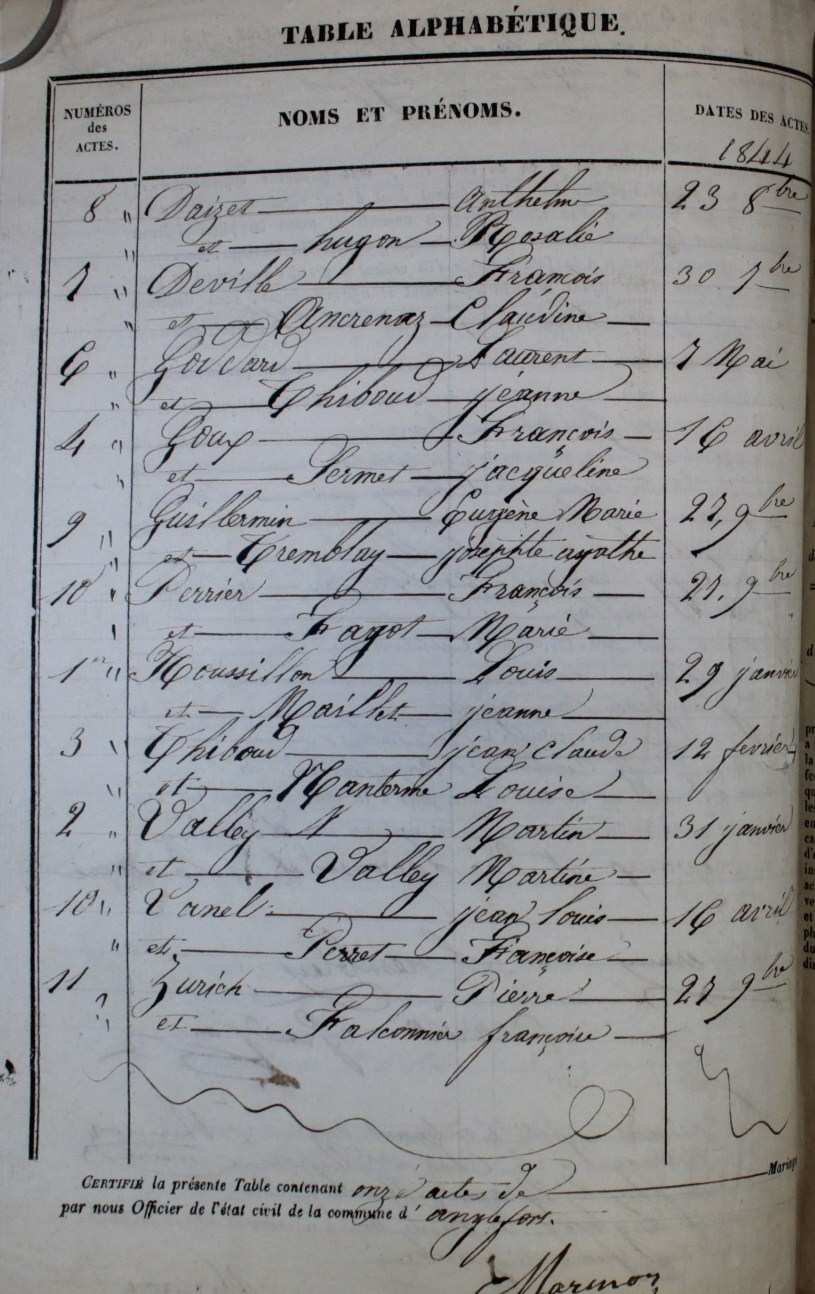 TABLE ALPHABÉTIQUE.
NUMÉROS des ACTES. NOMS ET PRÉNOMS. DATES DES ACTES.
1844
8 " Daizet Anthelme 23 8bre
" et hugon Rosalie
7 " Deville François 30 7bre
" et Ancrenaz Claudine
6 " Goddard Laurent 7 Mai
" et Thiboud jeanne
4 " Goux François 16 avril
" et Permet jacqueline
9 " Guillermin Eugène Marie 27, 9bre
" et Tremblay josephte agathe
10 " Perrier François 27, 9bre
" et Fagot Marie
1er " Roussillon Louis 29 janvier
et Maillet jeanne
3 " Thiboud jean claude 12 fevrier
" et Nanterme Louise
2 " Valley Martin 31 janvier
" et Valley Martine
10 " Vanel jean louis 16 avril
" et Perret Françoise
11 Zurich Pierre 27 9bre
" et Falconnier françoise
CERTIFIÉ la présente Table contenant onze actes de Mariage
par nous Officier de l'état civil de la commune d'anglefort.